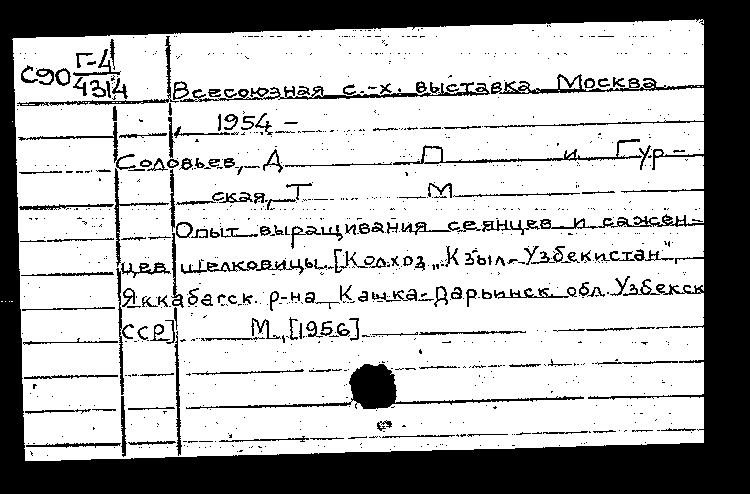 С90 Г-4
4314 Всесоюзная с.-х. выставка. Москва
, 1954 –
Соловьев, Д П и Гур-
ская, Т М
Опыт выращивания сеянцев и сажен-
цев шелковицы. [Колхоз „Кзыл-Узбекистан",
Яккабагск. р-на Кашка-Дарьинск. обл. Узбекск
ССР] М., [1956]